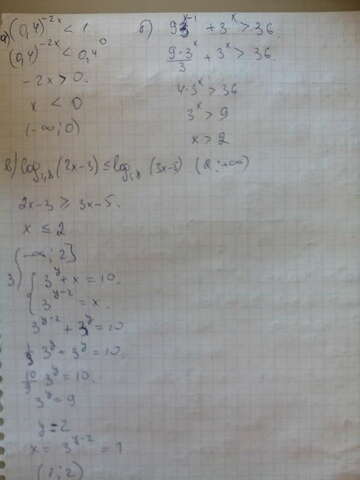 а) (0,4)^{-2x} < 1
(0,4)^{-2x} < 0,4^0
-2x > 0.
x < 0
(-∞; 0)
б) 9·3^{x-1} + 3^x > 36.
9·3^x/3 + 3^x > 36.
4·3^x > 36
3^x > 9
x > 2
(2; +∞)
в) log (2x-3) ≤ log (3x-5)
2x-3 ≥ 3x-5.
x ≤ 2
(-∞; 2]
3) { 3^y + x = 10.
3^{y-2} = x.
3^{y-2} + 3^y = 10
1/9 3^y + 3^y = 10.
10/9 3^y = 10.
3^y = 9
y = 2
x = 3^{y-2} = 1
(1; 2)